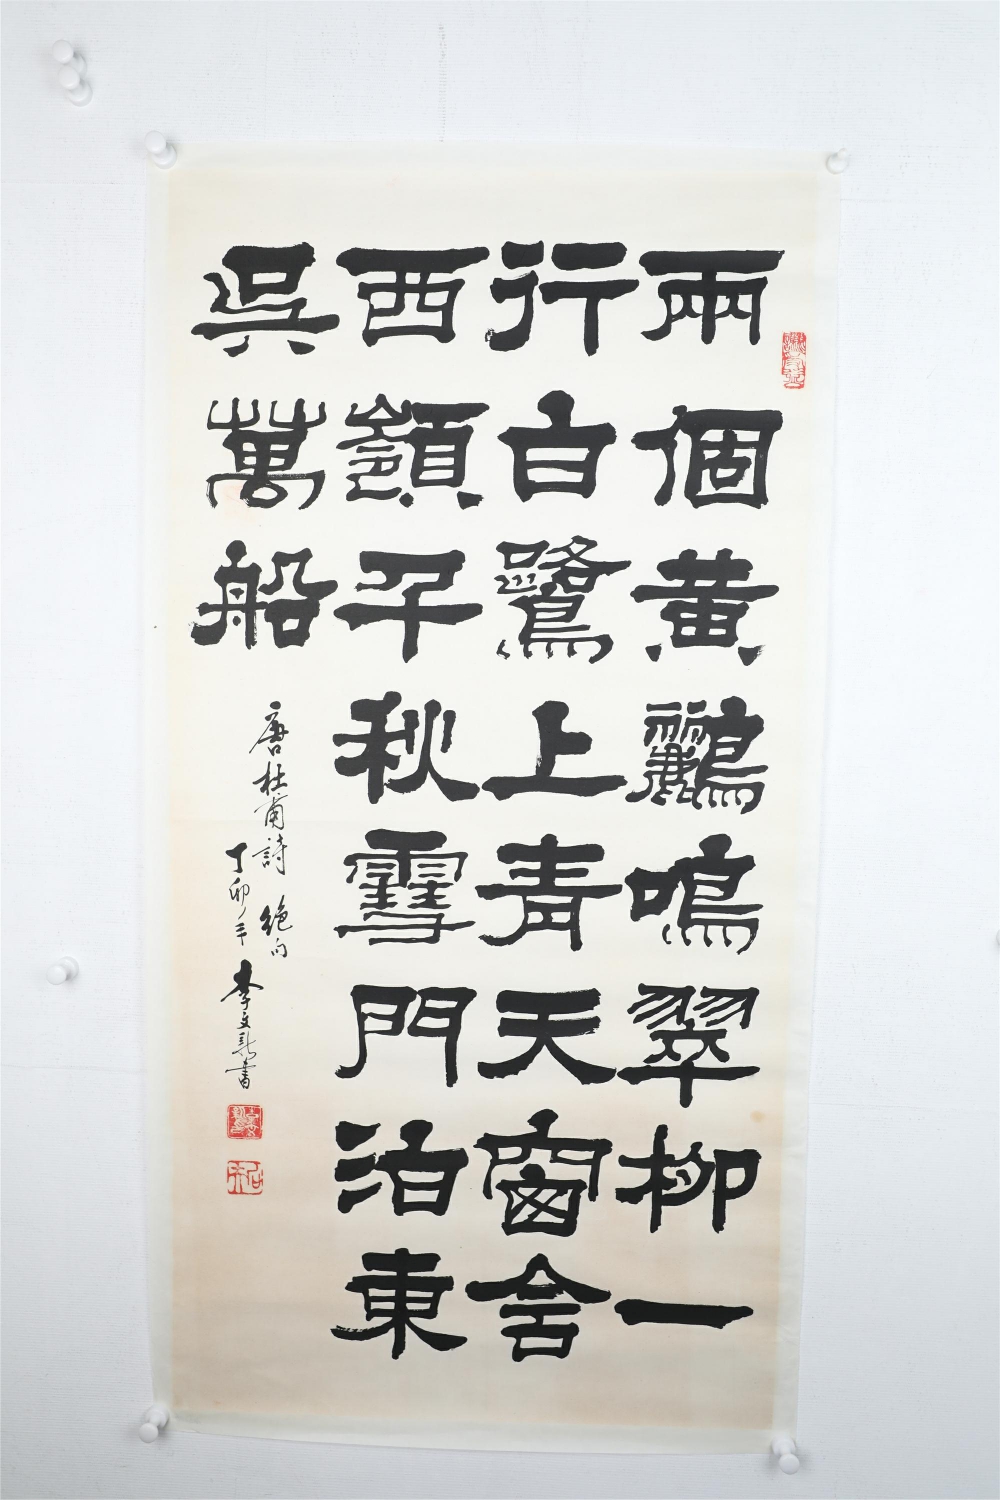 兩個黃鸝鳴翠柳一
行白鷺上青天窗含
西嶺千秋雪門泊東
吳萬船
唐杜甫詩 絕句
丁卯年 李文新書